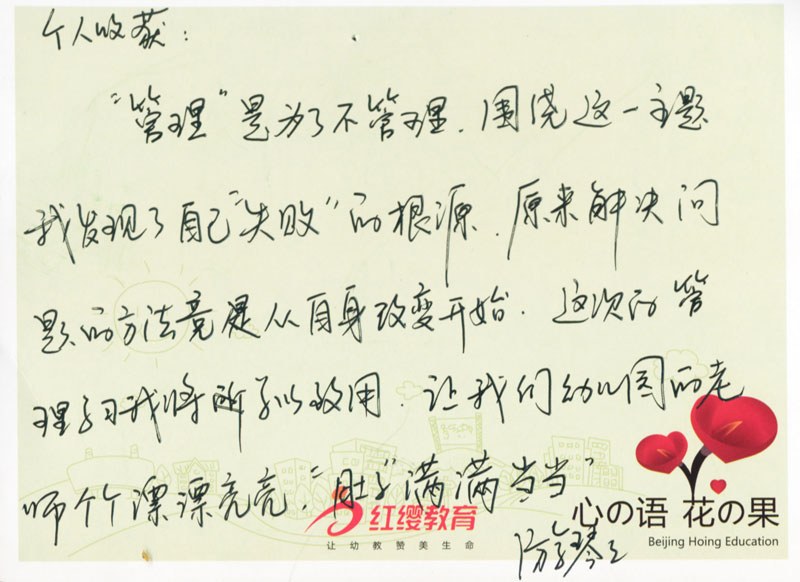 个人收获：
“管理”是为了不管理．围绕这一主题
我发现了自己“失败”的根源．原来解决问
题的方法竟是从自身改变开始．这次的管
理学习我将所学以致用．让我们幼儿园的老
师个个漂漂亮亮，“肚子”满满当当”
红缨教育
让幼教赞美生命
心の语 花の果
Beijing Hoing Education